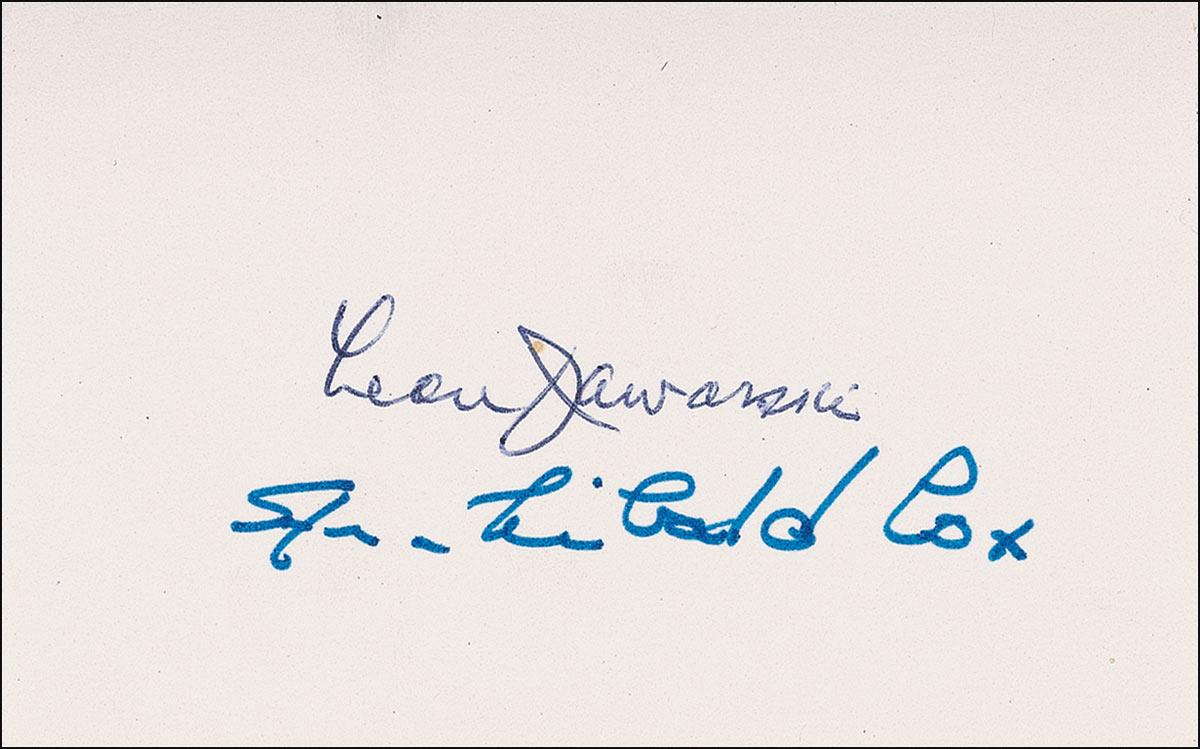 Leon Jaworski
Archibald Cox